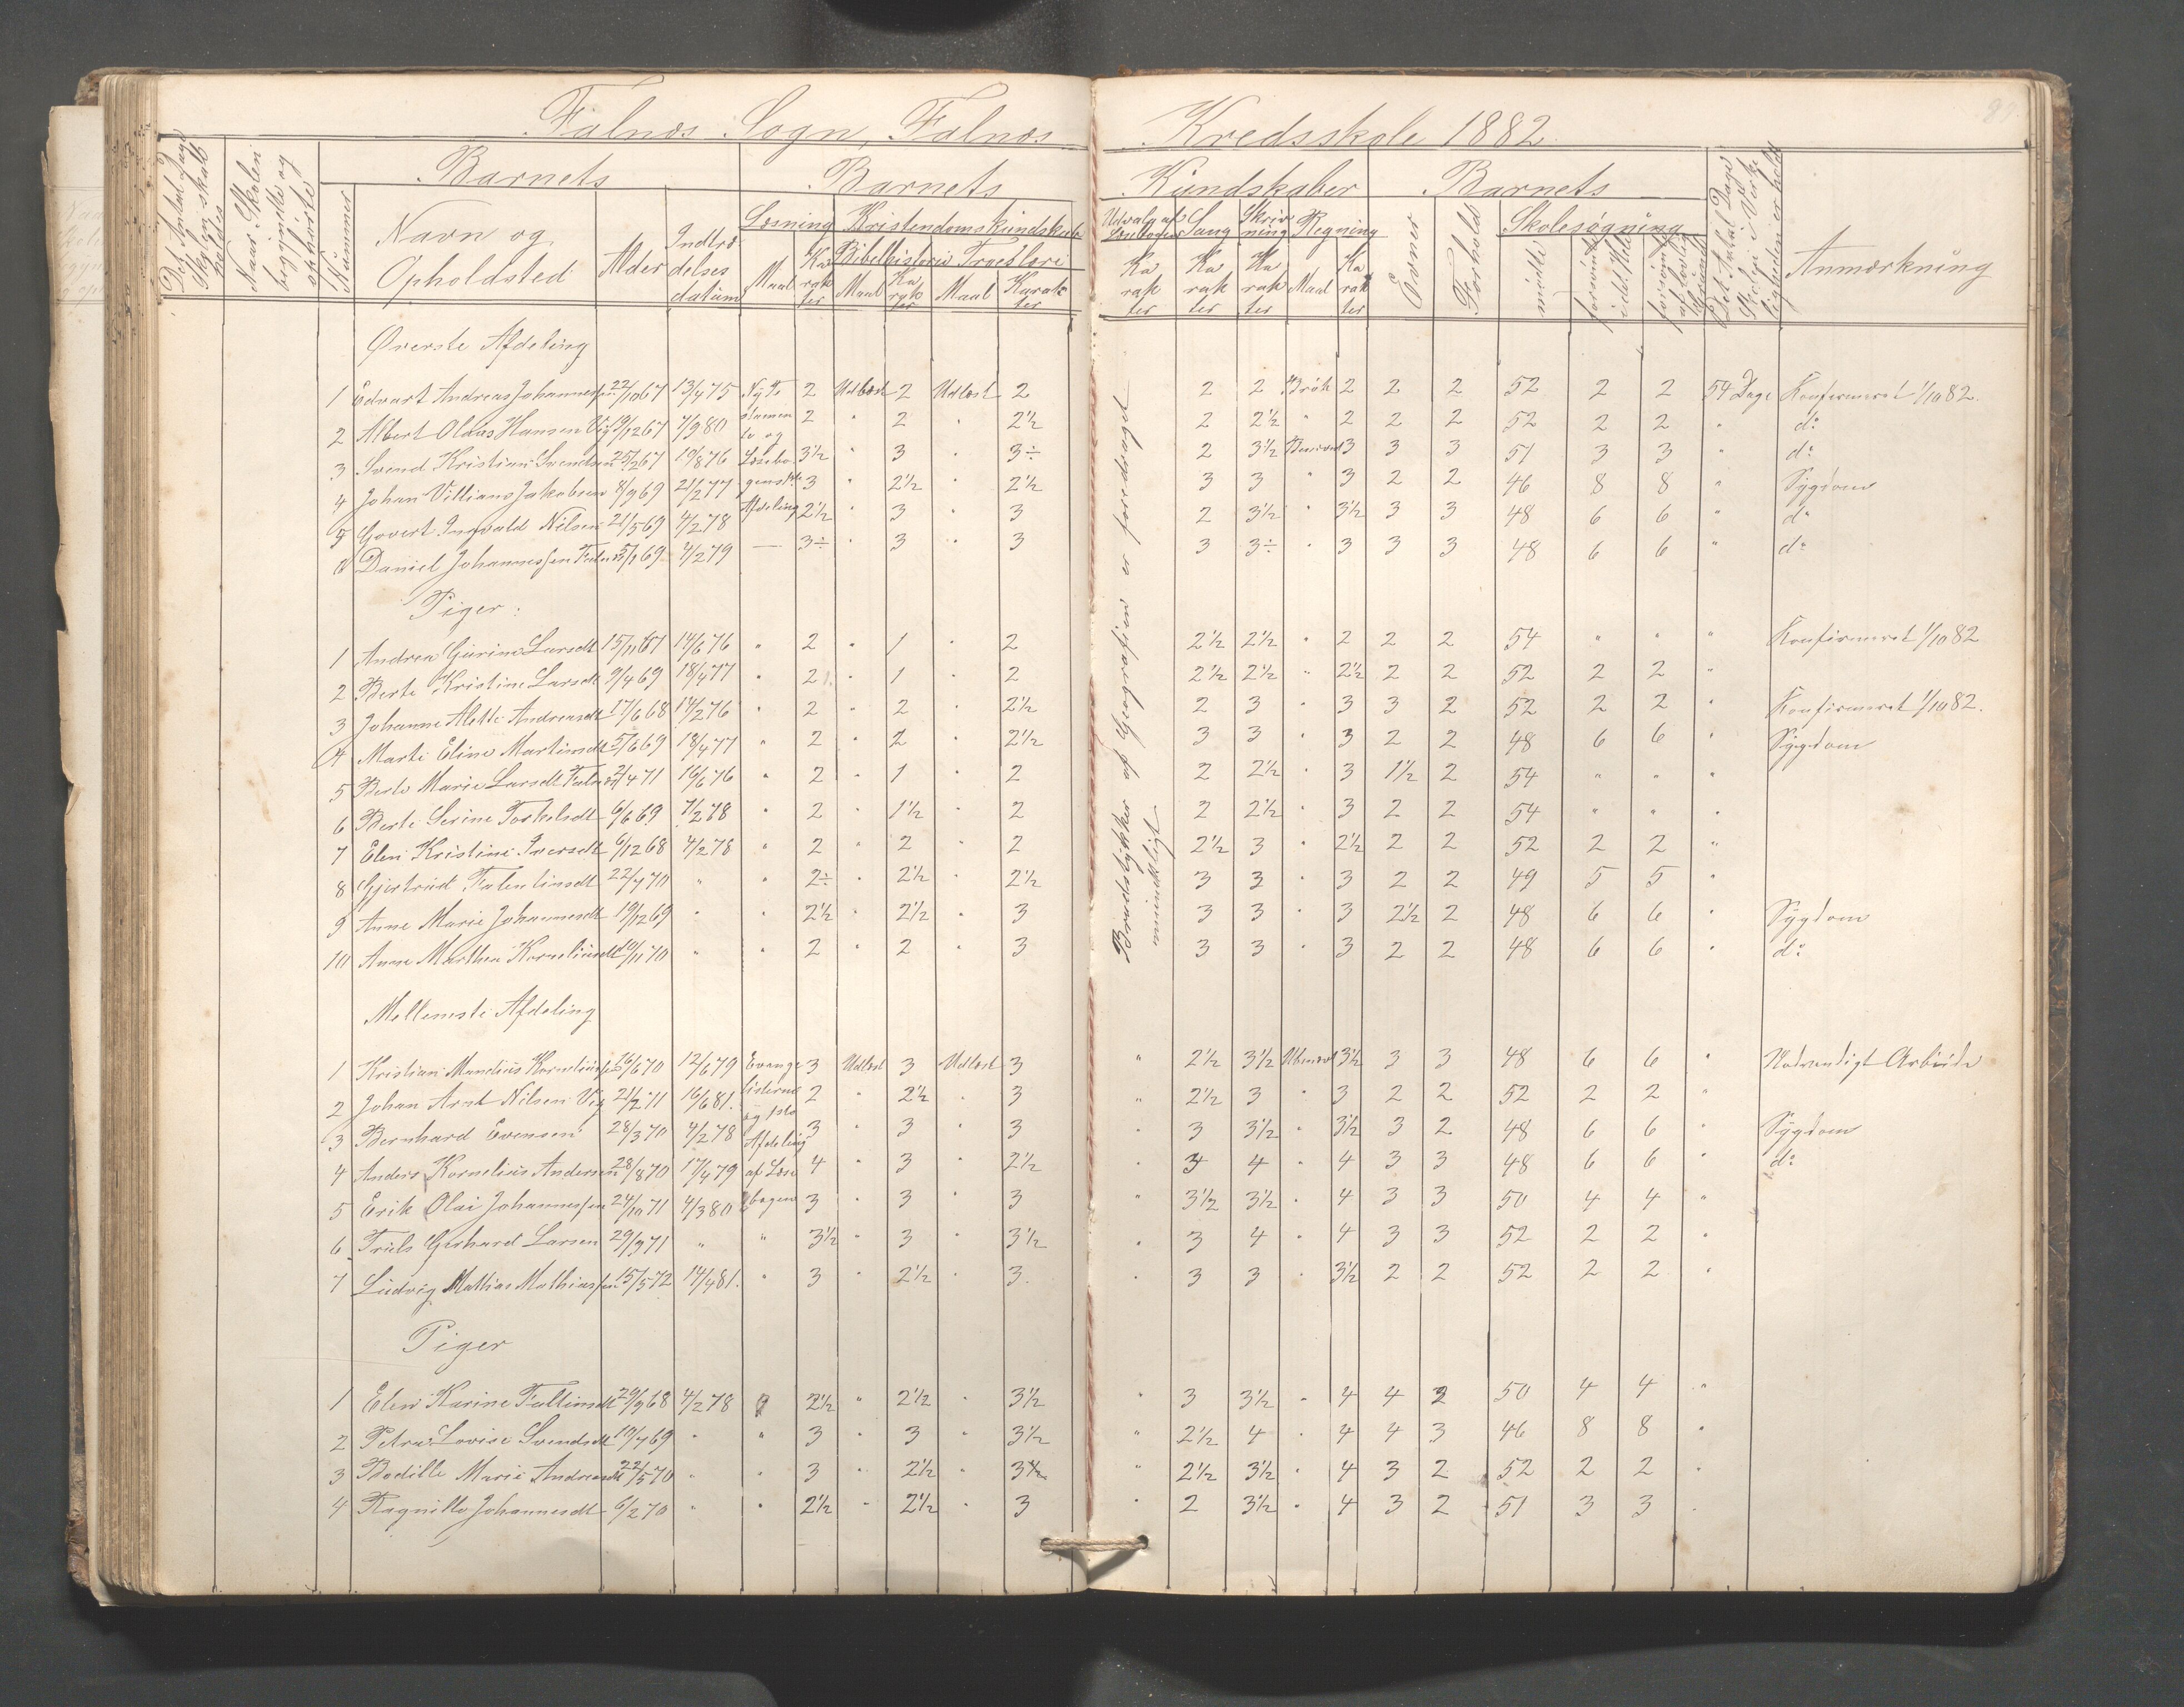 Falnæs Sogn, Falnæs Kredsskole 1882
Det Antal Dage Skolen skal holdes
Naar Skolen begyndte og ophørte
Nummer
Barnets
Navn og Opholdsted
Alder
Indtrædelses datum
Barnets Kundskaber
Læsning
Maal
Karakter
Kristendomskundskab
Bibelhistorie
Maal
Karakter
Troeslære
Maal
Karakter
Udvalg af Læsebogen
Karakter
Sang
Karakter
Skrivning
Karakter
Regning
Maal
Karakter
Barnets
Evner
Forhold
Skolesøgning
mødte
forsømte i det Hele
forsømte af lovlig Grund
Det Antal Dage Skolen i Virkeligheden er holdt
Anmærkning
Øverste Afdeling
1 Edvart Andreas Johannessen 22/10 67 13/4 75 Nyte 2 Udlæst 2 Udlæst 2 2 2 Brøk 2 2 2 52 2 2 54 Dage Konfirmeret 1/10 82.
2 Albert Olaus Hansen Vig 19/12 67 4/9 80 stamen 2 " 2 " 2½ 2 2½ " 2 2 2 52 2 2 " do
3 Svend Kristian Svendsen 25/2 67 19/8 76 te og Læsebo 3½ " 3 " 3÷ 2 3½ Ubenævnt 3 3 3 51 3 3 " do
4 Johan Villiams Jakobsen 8/9 69 21/2 77 gens 3 " 2½ " 2½ 3 3 " 3 2 2 46 8 8 " Sygdom
5 Govert Ingvald Nilsen 21/5 69 4/2 78 Afdeling 2½ " 3 " 3 2 3½ " 3½ 3 3 48 6 6 " do
6 Daniel Johannessen 69 4/2 79 — 3÷ " 3 " 3 3 3÷ " 3 3 3 48 6 6 " do
Brudstykker af Geografien er foredraget mundtligt
Piger:
1 Andrea Gurine Larsdt 15/11 67 14/6 76 " 2 " 1 " 2 2½ 2½ " 2 2 2 54 " " " Konfirmeret 1/10 82
2 Berte Kristine Larsdt 9/4 69 18/4 77 " 2 " 1 " 2 2½ 2½ " 2½ 2 2 52 2 2 "
3 Johanne Alette Andreasdt 17/6 68 14/2 76 " 2 " 2 " 2½ 2 3 " 3 3 2 52 2 2 " Konfirmeret 1/10 82.
4 Marte Eline Martinsdt 5/6 69 18/4 77 " 2 " 2 " 2½ 3 3 " 3 2 2 48 6 6 " Sygdom
5 Berte Marie Larsdt 4 71 16/6 76 " 2 " 1 " 2 2 2½ " 3 1½ 2 54 " " "
6 Berte Serine Torkelsdt 6/6 69 7/2 78 " 2 " 1½ " 2 2 2½ " 3 2 2 54 " " "
7 Elen Kristine Iversdt 6/12 68 4/2 78 " 2 " 2 " 2 2½ 3 " 2½ 2 2 52 2 2 "
8 Gjertrud Falentinsdt 22/7 70 " " 2÷ " 2½ " 2½ 3 3 " 3 2 2 49 5 5 "
9 Anne Marie Johannesdt 19/12 69 " " 2½ " 2½ " 3 3 3 " 3 2½ 2 48 6 6 " Sygdom
10 Anne Marthea Korneliusdt 10/11 70 " " 2 " 2 " 3 3 3 " 3 2 2 48 6 6 " do
Mellemste Afdeling
1 Kristian Mandius Korneliussen 26/6 70 12/6 79 Evange 3 Udlæst 3 Udlæst 3 " 2½ 3½ Ubenævnt 3½ 3 3 48 6 6 " Nødvendigt Arbeide
2 Johan Arnt Nilsen Vig 21/2 71 16/6 81. listerne 2 " 2½ " 3 " 2½ 3 " 3 2 2 52 2 2 "
3 Bernhard Evensen 28/3 70 4/2 78 og 1ste Afdeling 3 " 3 " 3 " 3 3½ " 3½ 3 2 48 6 6 " Sygdom
4 Anders Kornelius Andersen 28/8 70 17/4 79 af Læse 4 " 3 " 2½ " 3 4 " 4 3 3 48 6 6 " do
5 Erik Olai Johannessen 24/10 71 4/3 80 bogen 3 " 3 " 3 " 3½ 3½ " 4 3 3 50 4 4 "
6 Truls Gerhard Larsen 29/9 71 " " 3½ " 3 " 3½ " 3 4 " 4 3 3 52 2 2 "
7 Ludvig Mathias Mathiassen 15/5 72 14/4 81. " 3 " 2½ " 3. " 3 3 " 3½ 2 2 52 2 2 "
Piger
1 Elen Karine 29/9 68 4/2 78 " 2½ " 2½ " 3½ " 3 3½ " 4 4 2 50 4 4 "
2 Petra Lovise Svendsdt 10/7 69 " " 3 " 3 " 3½ " 2½ 4 " 4 4 3 46 8 8 "
3 Bodille Marie Andreasdt 22/5 70 " " 3 " 2½ " 3½ " 2½ 3½ " 4 3 2 52 2 2 "
4 Ragnilla Johannesdt 6/2 70 " " 2½ " 2½ " 3 " 2 3½ " 4 3 2 51 3 3 "